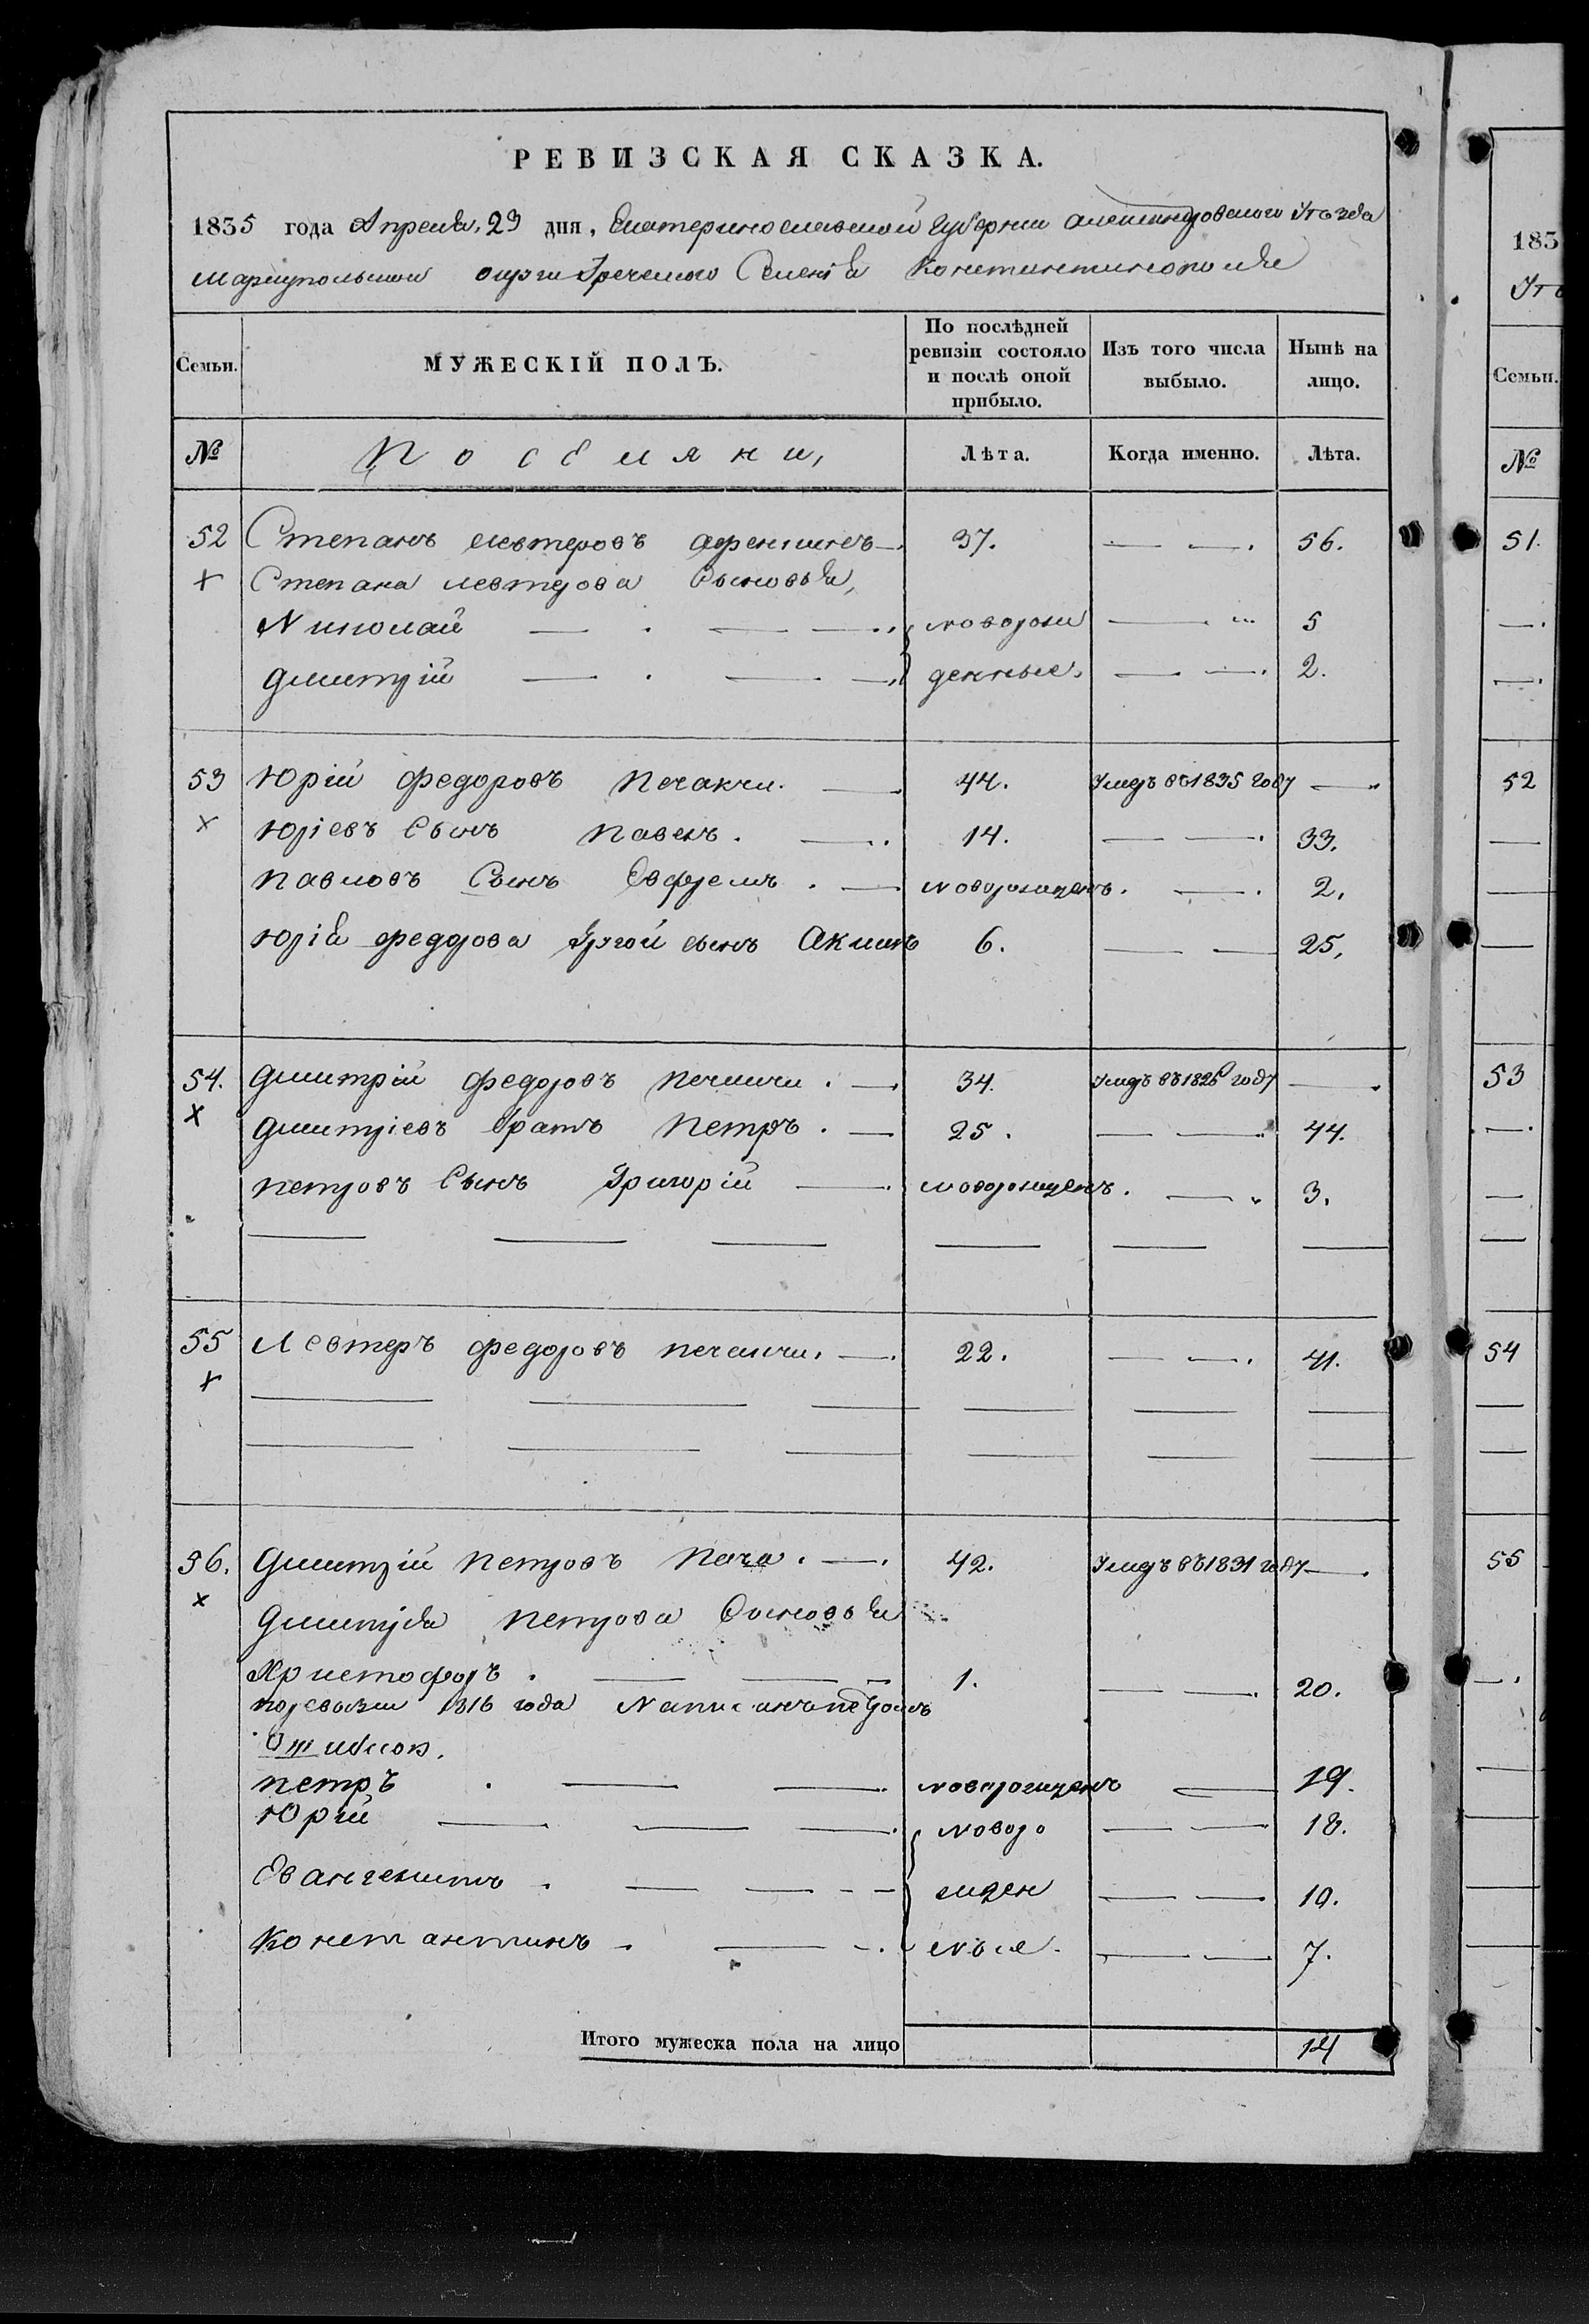 РЕВИЗСКАЯ СКАЗКА.
1835 года Апреля, 29 дня, Екатеринославской Губернии Александровского Уѣзда
Мариупольскои округи Греческого Селенія Константинополя
Семьи. МУЖЕСКІЙ ПОЛЪ. По послѣдней ревизіи состояло и послѣ оной прибыло. Изъ того числа выбыло. Нынѣ на лицо.
№ Поселяни, Лѣта. Когда именно. Лѣта.
52 Степанъ левтеровъ 37. — — . 56.
Х Степана левтерова Сыновья,
Николай — . — — новорож — 5
дмитрій — . — — денные. — — . 2.
53 Юрій федоровъ Печакчи. — 44. Умеръ въ 1835 году —
х юріевъ Сынъ павелъ. — . 14. — — . 33.
павловъ Сынъ Евфремъ . — новорожденъ. — . 2.
юрія федорова другой сынъ Акимъ 6. — — 25.
54. дмитрій федоровъ печакчи . — 34. Умеръ въ 1826 году —
Х дмитріевъ братъ Петръ . — 25. — — 44.
петровъ Сынъ Григорій — . новорожденъ. — 3.
55 Левтеръ федоровъ печакчи. — . 22. — — . 41.
х
56. дмитрій петровъ Пача . — . 42. Умеръ въ 1831 году — .
х дмитрія петрова Сыновья
Христофоръ . — — — 1. — — . 20.
по ревизіи 1816 года Написанъ петромъ
Ошибкою.
петръ . — — новорожденъ — 19.
Юрій — — — новоро — — 18.
Евангелитъ . — — - - жден — — 10.
Константинъ . — - . ные. — — 7.
Итого мужеска пола на лицо 14
185
Уѣ
Семьи.
№
51.
52
53
54
55